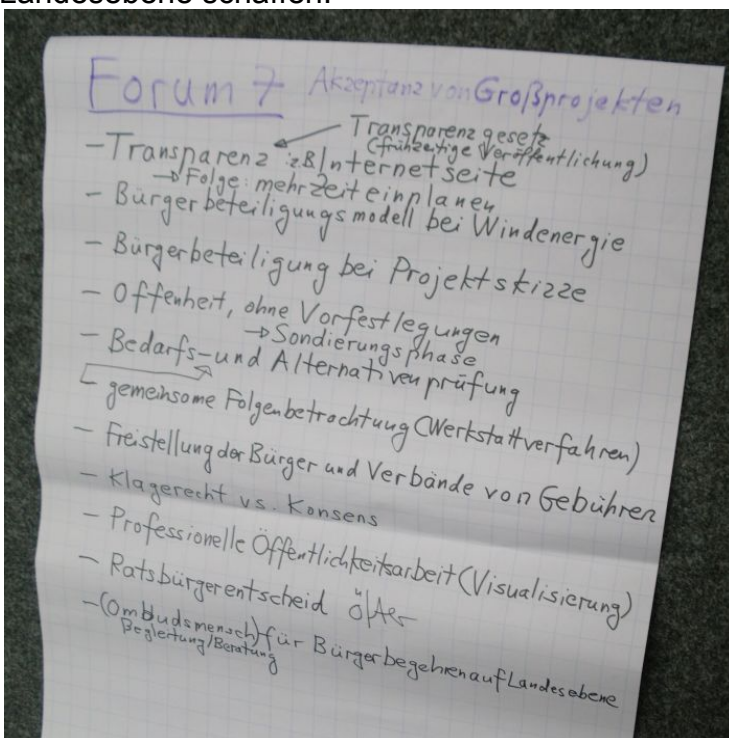 Landesebene schaffen.
Forum 7 Akzeptanz von Großprojekten
Transparenzgesetz
(frühzeitige Veröffentlichung)
- Transparenz z B Internetseite
→ Folge: mehr Zeit einplanen
- Bürgerbeteiligungsmodell bei Windenergie
- Bürgerbeteiligung bei Projektskizze
- Offenheit, ohne Vorfestlegungen
→ Sondierungsphase
- Bedarfs- und Alternativenprüfung
gemeinsame Folgenbetrachtung (Werkstattverfahren)
- Freistellung der Bürger und Verbände von Gebühren
- Klagerecht vs. Konsens
- Professionelle Öffentlichkeitsarbeit (Visualisierung)
- Ratsbürgerentscheid
- (Ombudsmensch) für Bürgerbegehren auf Landesebene
Begleitung/Beratung